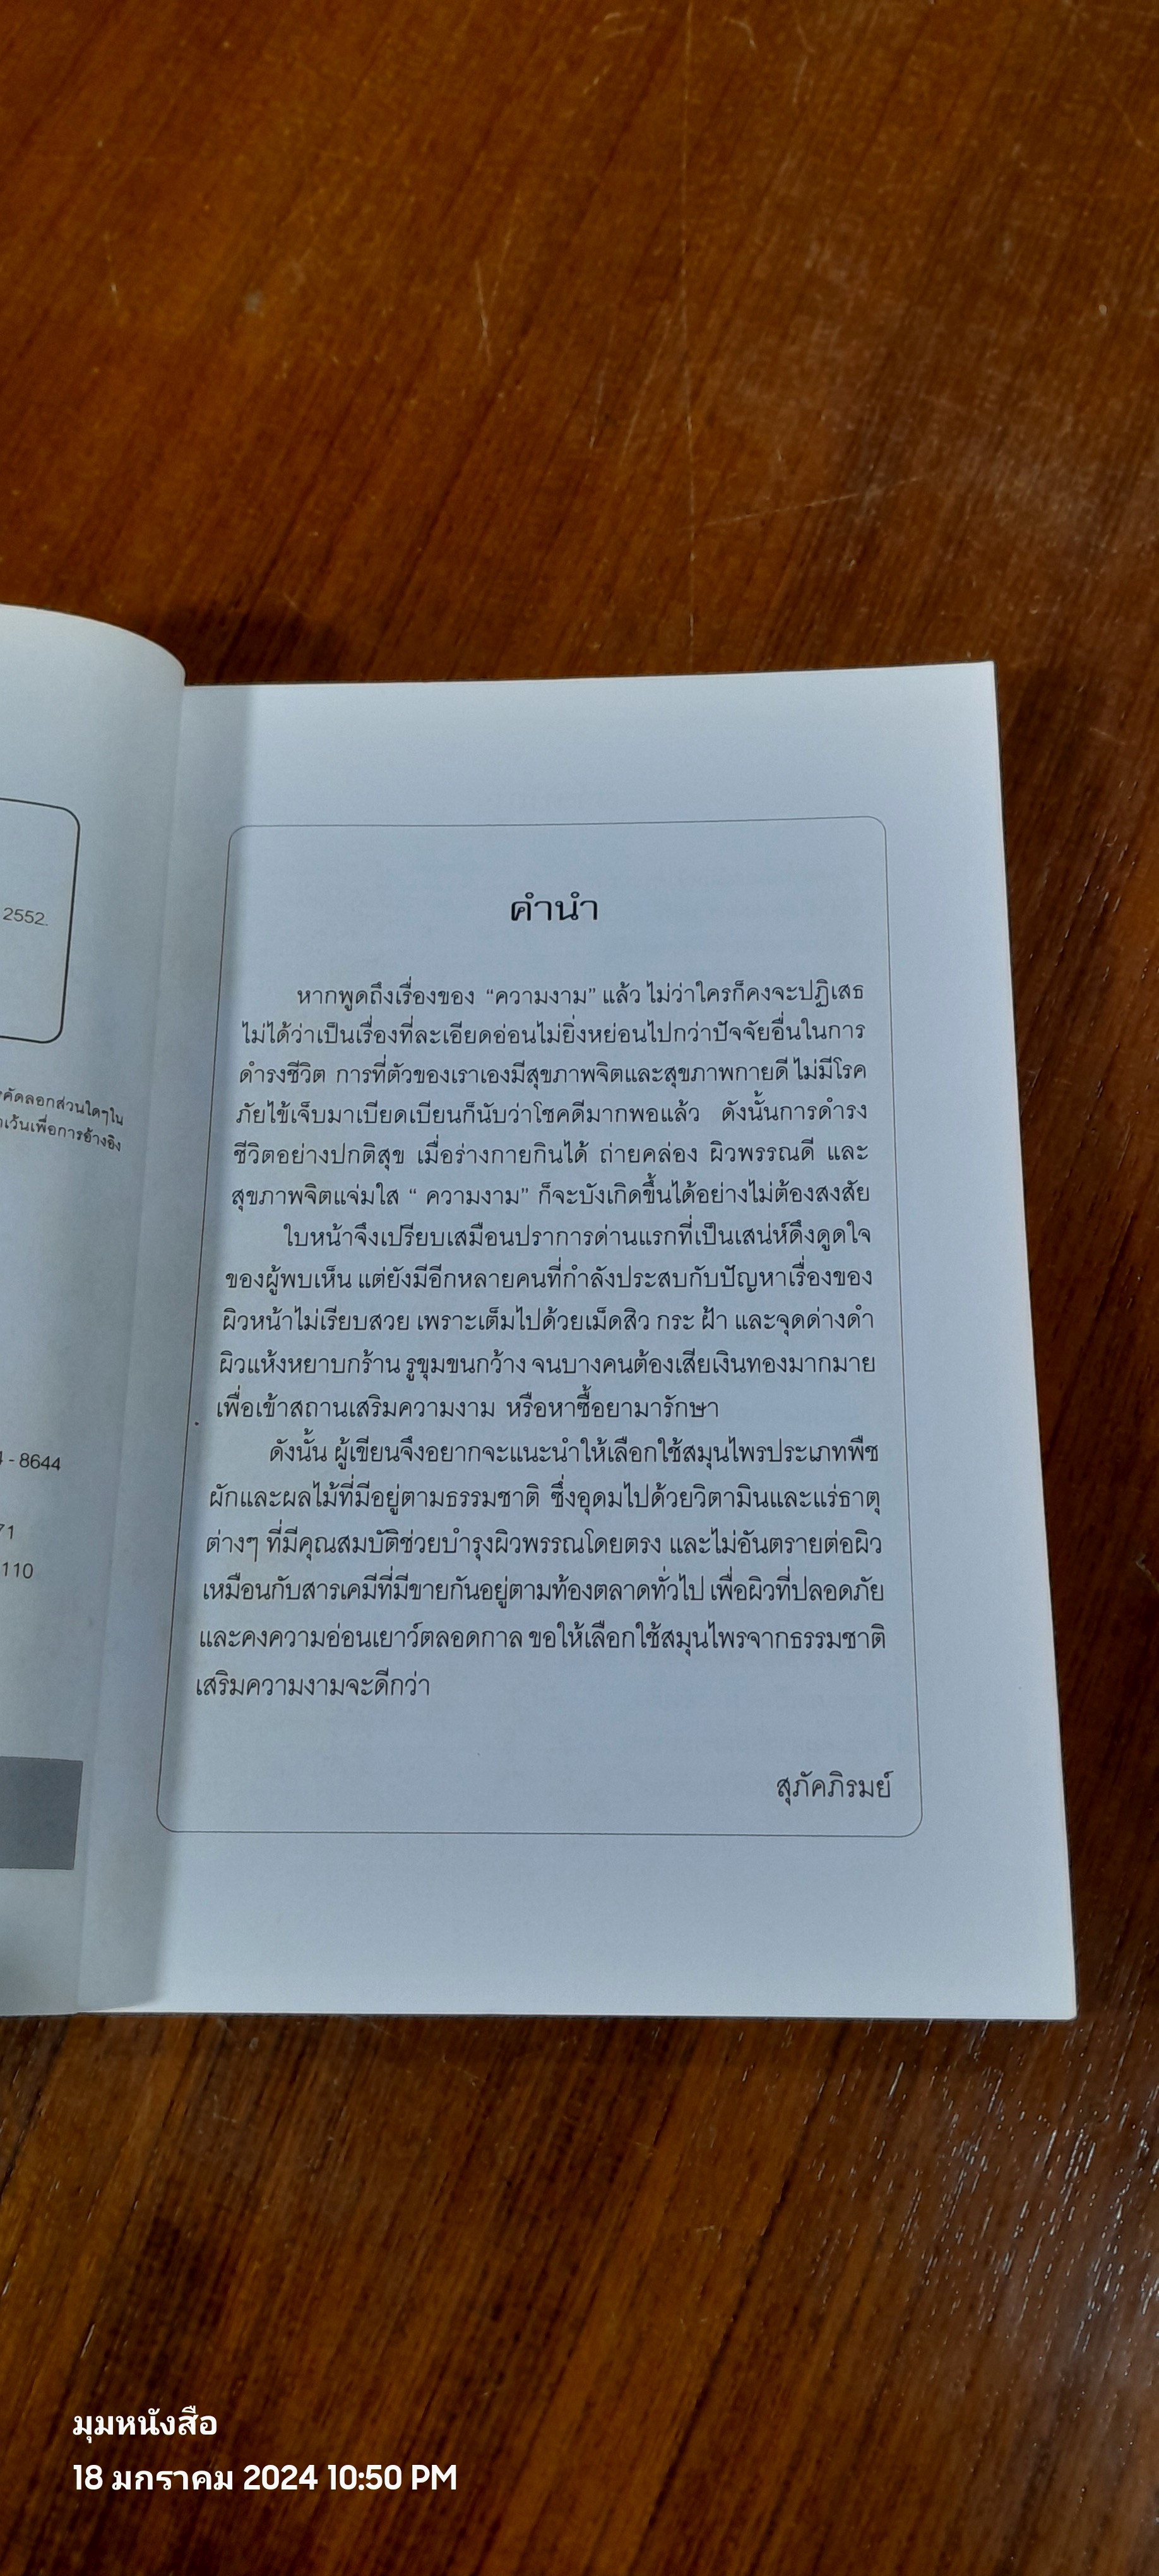 2552.
คัดลอกส่วนใดๆใน
เว้นเพื่อการอ้างอิง
- 8644
71
110
คำนำ
หากพูดถึงเรื่องของ “ความงาม” แล้ว ไม่ว่าใครก็คงจะปฏิเสธ
ไม่ได้ว่าเป็นเรื่องที่ละเอียดอ่อนไม่ยิ่งหย่อนไปกว่าปัจจัยอื่นในการ
ดำรงชีวิต การที่ตัวของเราเองมีสุขภาพจิตและสุขภาพกายดี ไม่มีโรค
ภัยไข้เจ็บมาเบียดเบียนก็นับว่าโชคดีมากพอแล้ว ดังนั้นการดำรง
ชีวิตอย่างปกติสุข เมื่อร่างกายกินได้ ถ่ายคล่อง ผิวพรรณดี และ
สุขภาพจิตแจ่มใส “ ความงาม” ก็จะบังเกิดขึ้นได้อย่างไม่ต้องสงสัย
ใบหน้าจึงเปรียบเสมือนปราการด่านแรกที่เป็นเสน่ห์ดึงดูดใจ
ของผู้พบเห็น แต่ยังมีอีกหลายคนที่กำลังประสบกับปัญหาเรื่องของ
ผิวหน้าไม่เรียบสวย เพราะเต็มไปด้วยเม็ดสิว กระ ฝ้า และจุดด่างดำ
ผิวแห้งหยาบกร้าน รูขุมขนกว้าง จนบางคนต้องเสียเงินทองมากมาย
เพื่อเข้าสถานเสริมความงาม หรือหาซื้อยามารักษา
ดังนั้น ผู้เขียนจึงอยากจะแนะนำให้เลือกใช้สมุนไพรประเภทพืช
ผักและผลไม้ที่มีอยู่ตามธรรมชาติ ซึ่งอุดมไปด้วยวิตามินและแร่ธาตุ
ต่างๆ ที่มีคุณสมบัติช่วยบำรุงผิวพรรณโดยตรง และไม่อันตรายต่อผิว
เหมือนกับสารเคมีที่มีขายกันอยู่ตามท้องตลาดทั่วไป เพื่อผิวที่ปลอดภัย
และคงความอ่อนเยาว์ตลอดกาล ขอให้เลือกใช้สมุนไพรจากธรรมชาติ
เสริมความงามจะดีกว่า
สุภัคภิรมย์
มุมหนังสือ
18 มกราคม 2024 10:50 PM